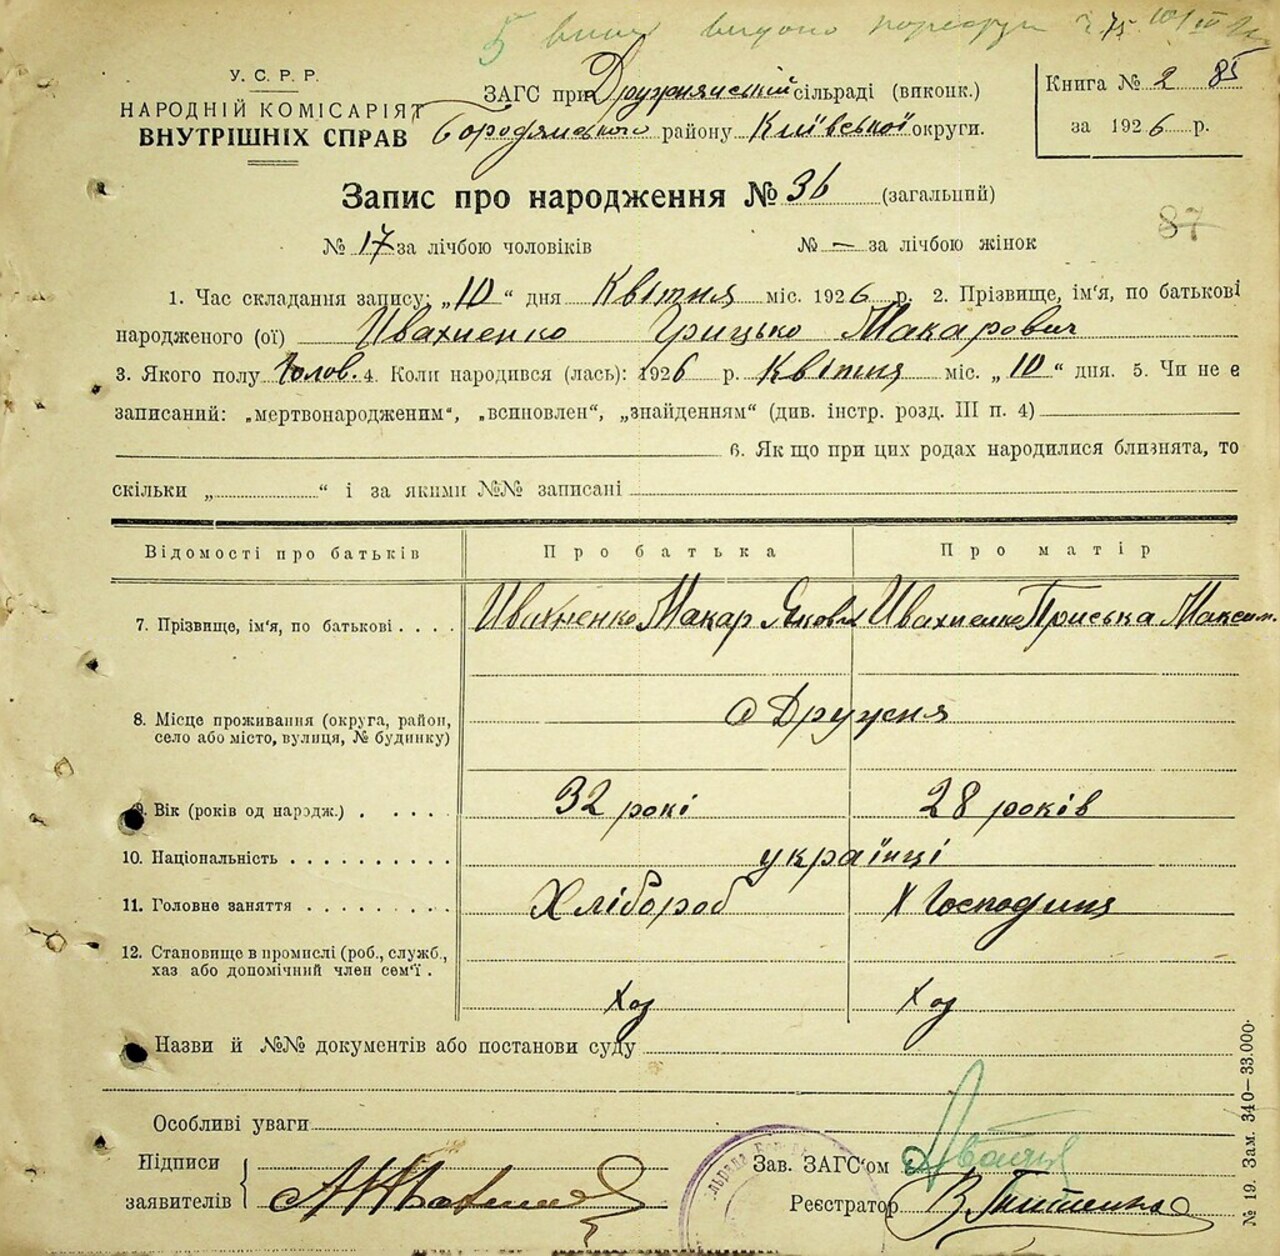 У. С. Р. Р.
НАРОДНІЙ КОМІСАРІЯТ
ВНУТРІШНІХ СПРАВ
ЗАГС при Дружнянській сільраді (виконк.)
Бородянського району Київської округи.
Книга № 2 85
за 1926 р.
Запис про народження № 36 (загальний)
№ 17 за лічбою чоловіків № — за лічбою жінок
87
1. Час складання запису: „10“ дня Квітня міс. 1926 р. 2. Прізвище, ім'я, по батькові
народженого (ої) Ивахненко Грицько Макарович
3. Якого полу Чолов. 4. Коли народився (лась): 1926 р. Квітня міс. „10“ дня. 5. Чи не є
записаний: „мертвонародженим“, „всиновлен“, „знайденням“ (див. інстр. розд. III п. 4)
6. Як що при цих родах народилися близнята, то
скільки „ “ і за якими №№ записані
Відомості про батьків Про батька Про матір
7. Прізвище, ім'я, по батькові . . . . Ивахненко Макар Якович Ивахненко Приська Максим.
8. Місце проживання (округа, район,
село або місто, вулиця, № будинку)
с Дружня
9. Вік (років од народж.) . . . . . 32 рокі 28 років
10. Національність . . . . . . . . . . українці
11. Головне заняття . . . . . . . . . Хлібороб Х Господиня
12. Становище в промислі (роб., служб.,
хаз або допомічний член сем'ї .
Хаз Хаз
Назви й №№ документів або постанови суду
Особливі уваги
Підписи
заявителів
Зав. ЗАГС'ом
Реєстратор
№ 19. Зам. 340—33.000.